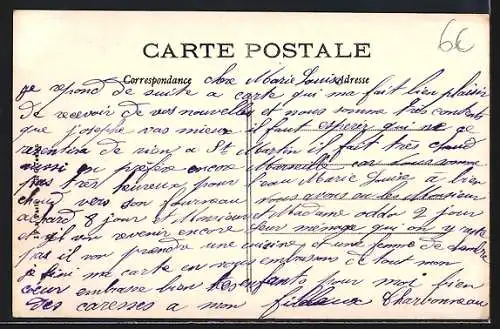 6€
CARTE POSTALE
Correspondance
Adresse
chère Marie Louise
je repond de suite a carte qui ma fait bien plaisir
De recevoir de vos nouvelles et nous somme très contents
que josephe vas mieux il faut esperez qui ne ce
resentira de rien a St Martin il fait très chaud
aussi on préfère encore Marseille car nous somme
pas très heureux pour l'eau Marie Louise a bien
chaud vers son fourneau nous avons eu les Monsieur
8 jour et Monsieur et Madame oddon 2 jour
et il von revenir encore leur menage qui on y reste
pas il von prendre une cuisine et une femme de chambre
je fini ma carte en vous embrassen de tout mon
coeur embrasse bien les enfants pour moi bien
Des caresses a mon filleux Charbonneau